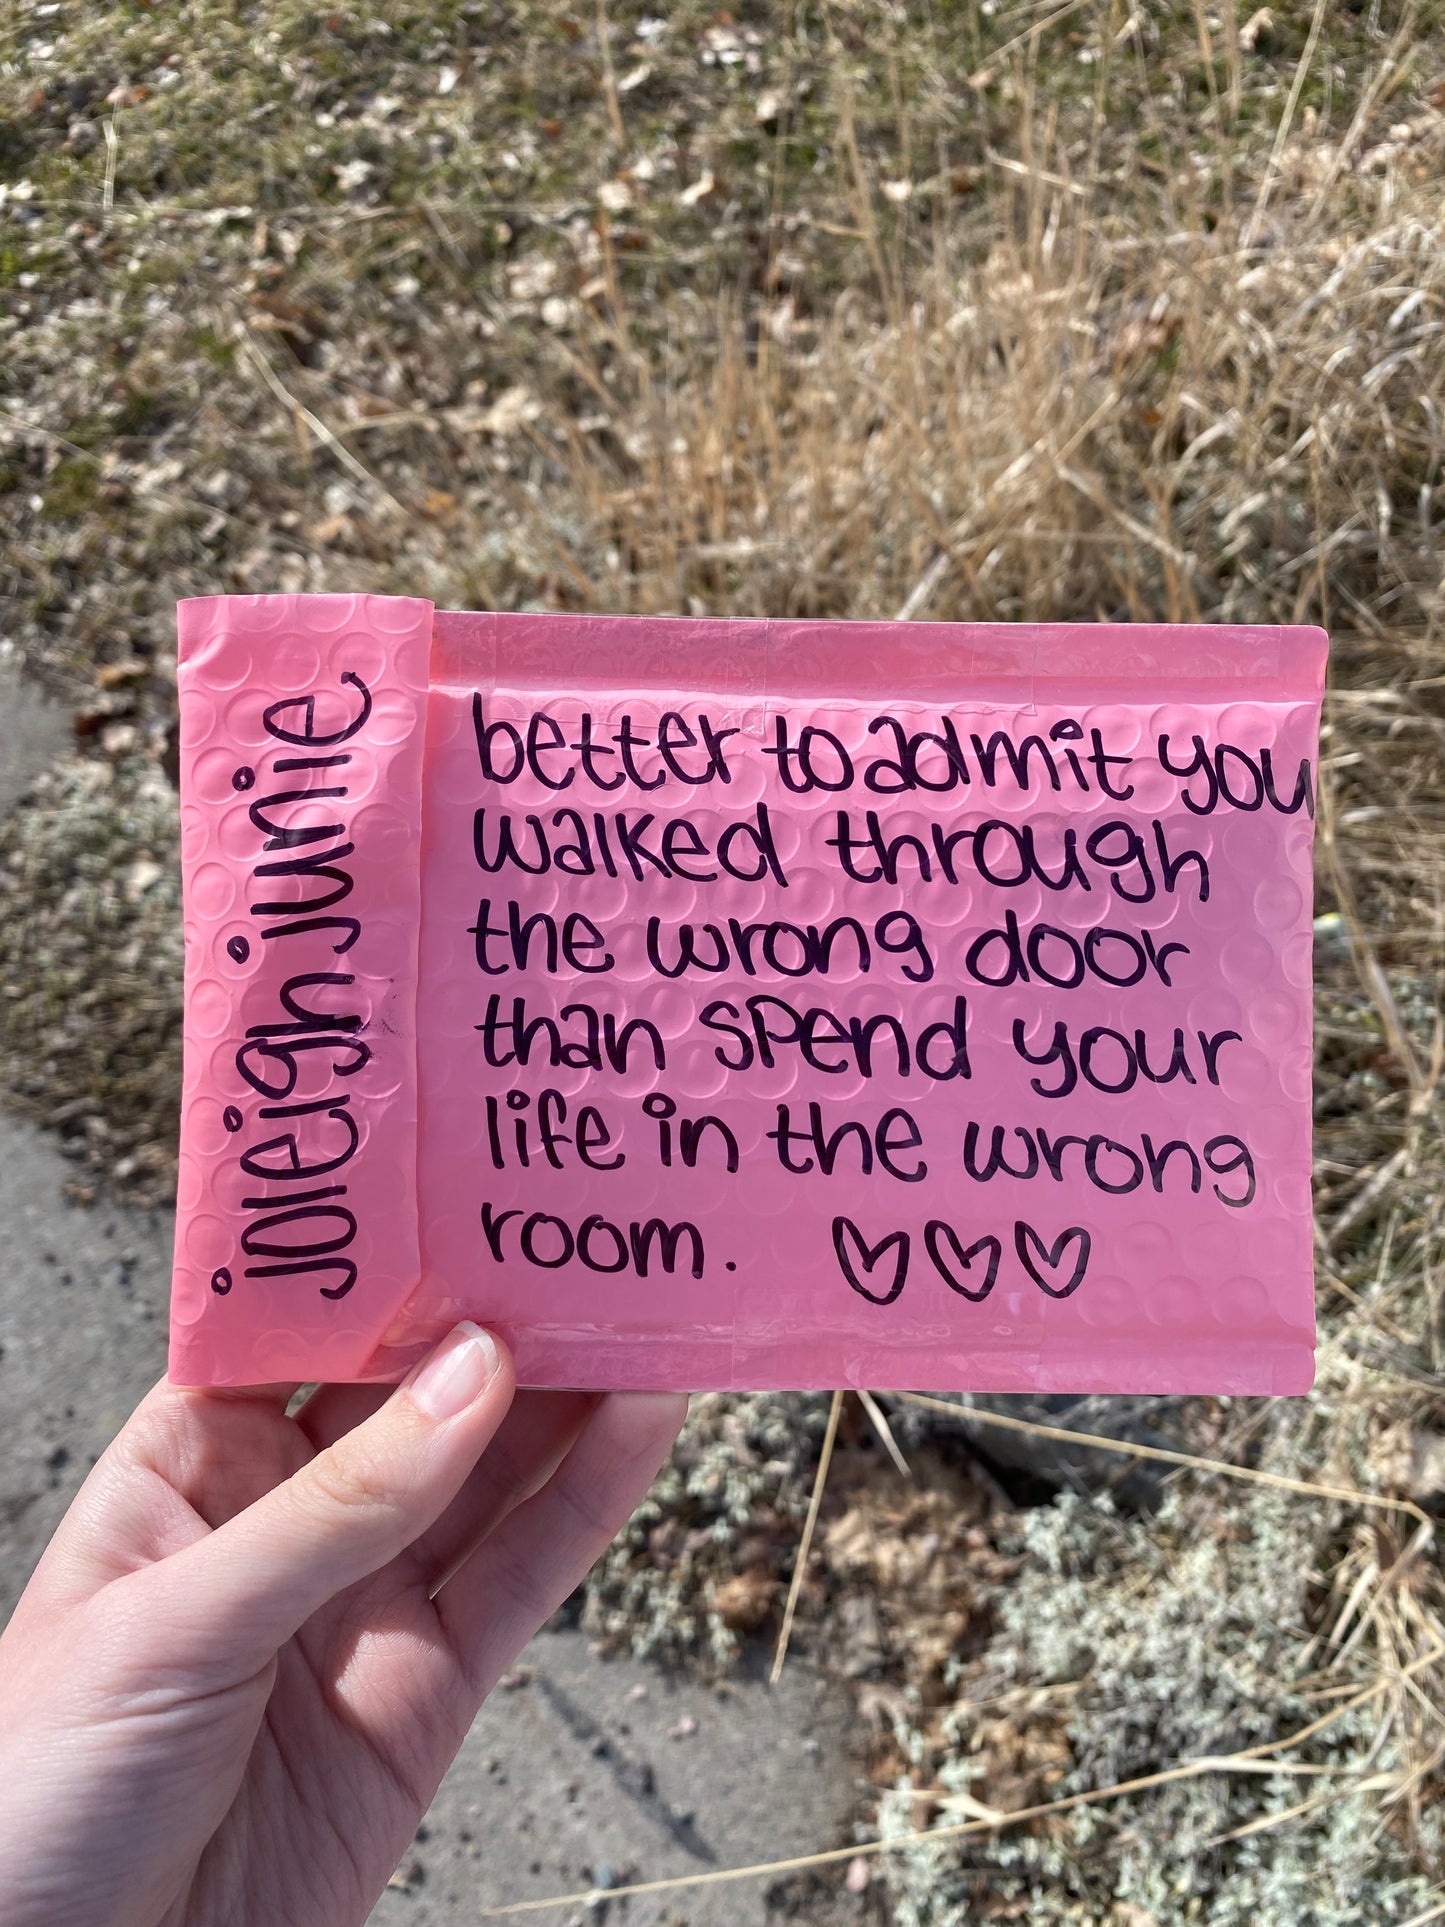 joleigh junie
better to admit you
walked through
the wrong door
than spend your
life in the wrong
room.